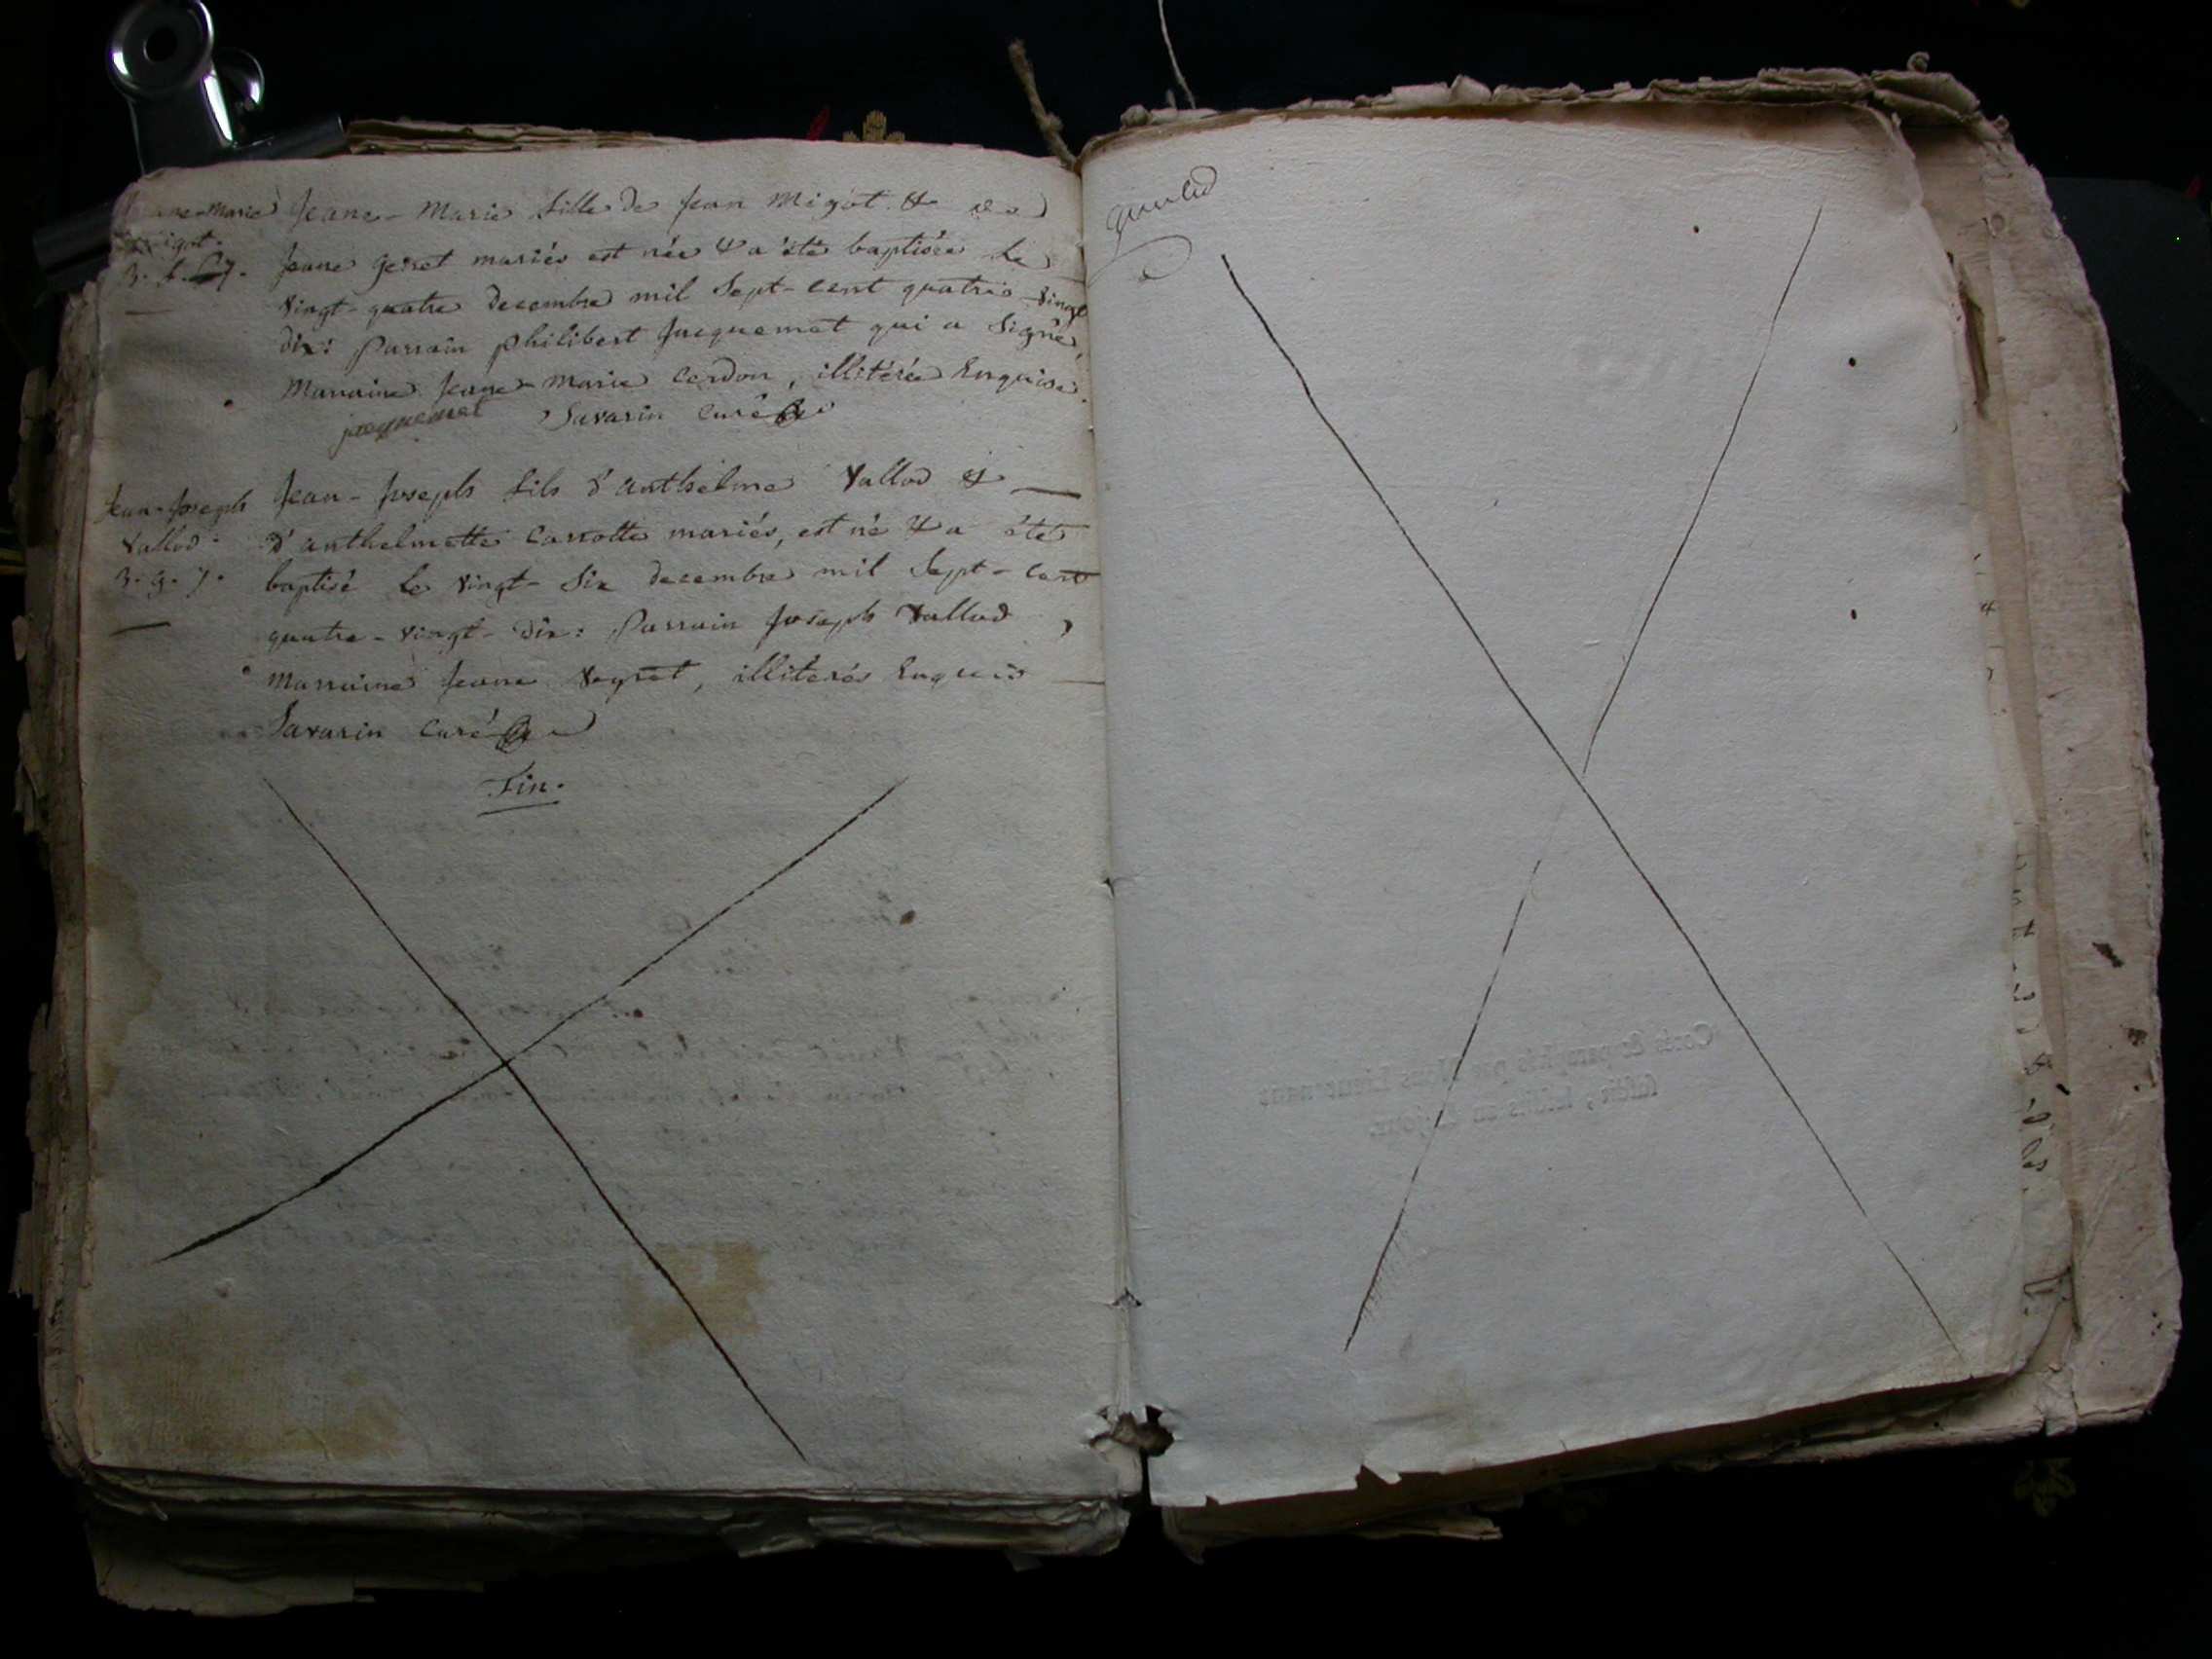 Jeane-Marie fille de Jean Migot & de
Jeane genet mariés est née & a été baptisée le
vingt-quatre decembre mil Sept-cent quatre vingt
dix: Parrain Philibert Jacquemet qui a Signé,
Marraine Jeane-Marie Cerdon, illitérée Enquise.
jacquemet Savarin Curé
Jean-Joseph
Vallod.
3. g. 7.
Jean-Joseph fils d'anthelme Vallod &
d'anthelmette Carrotte mariés, est né & a été
baptisé le vingt-six decembre mil Sept-cent
quatre-vingt-dix: Parrain Joseph Vallod,
Marraine Jeane Veyret, illiterés Enquis
Savarin Curé
Fin.
Cottés & paraphés par Nous Lieutenant